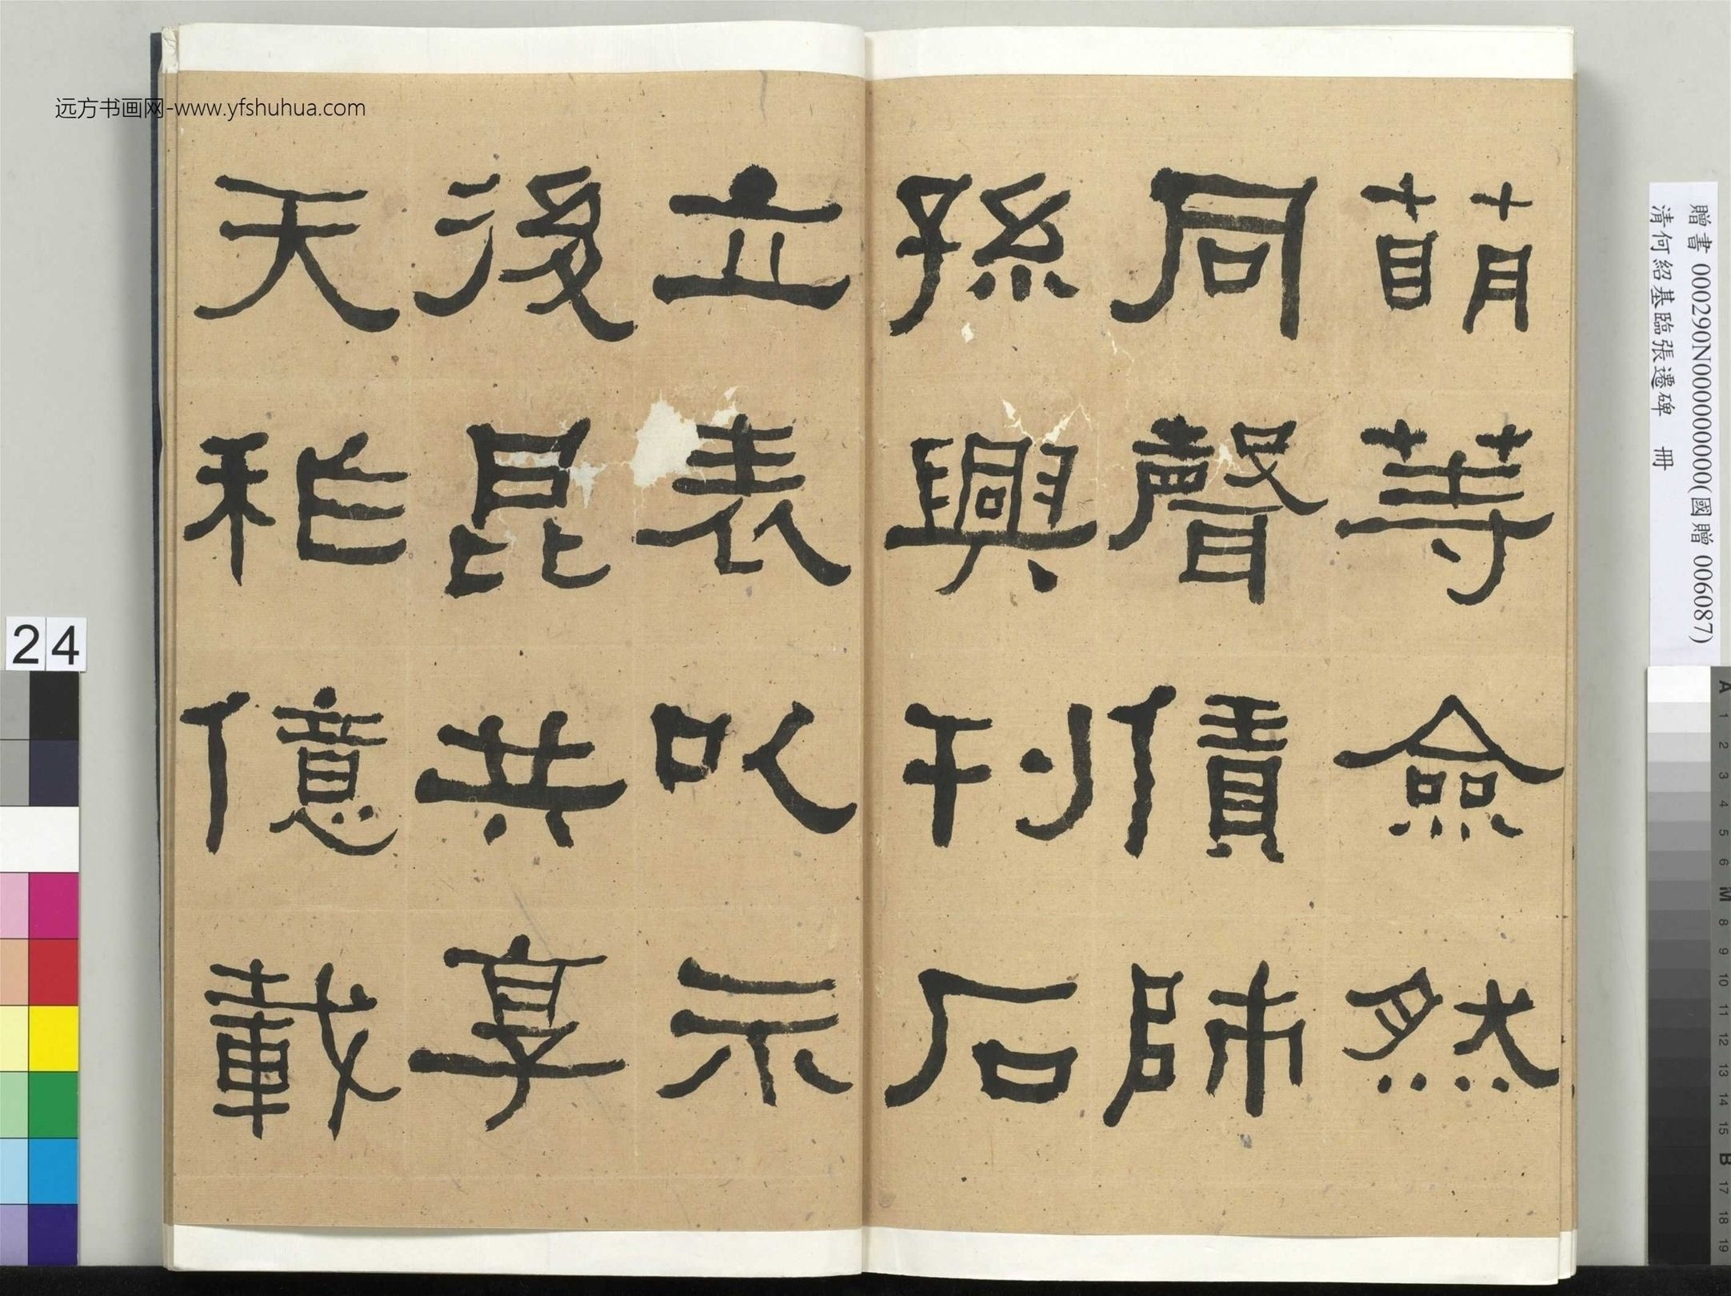 萌荨僉然
同聲僓師
孫興刊石
立表㕥示
後昆共享
天秨億載
远方书画网-www.yfshuhua.com
贈書 000290N000000000(國贈 006087)
清何紹基臨張遷碑 冊
24
A 1 2 3 4 5 6 M 8 9 10 11 12 13 14 15 B 17 18 19